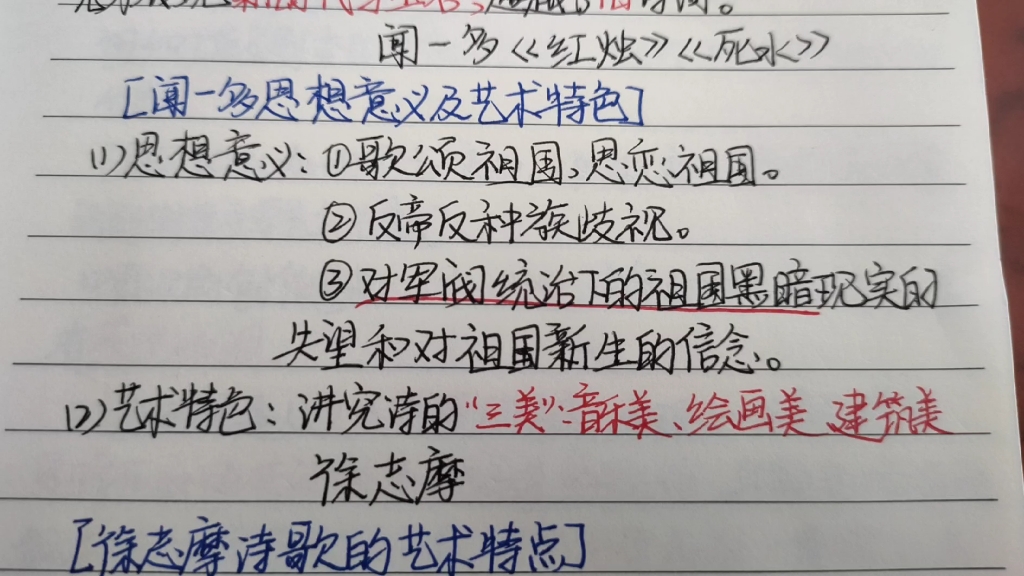 闻一多《红烛》《死水》
[闻一多思想意义及艺术特色]
(1)思想意义:①歌颂祖国、思恋祖国。
②反帝反种族歧视。
③对军阀统治下的祖国黑暗现实的
失望和对祖国新生的信念。
(2)艺术特色:讲究诗的“三美”:音乐美、绘画美 建筑美
徐志摩
[徐志摩诗歌的艺术特点]